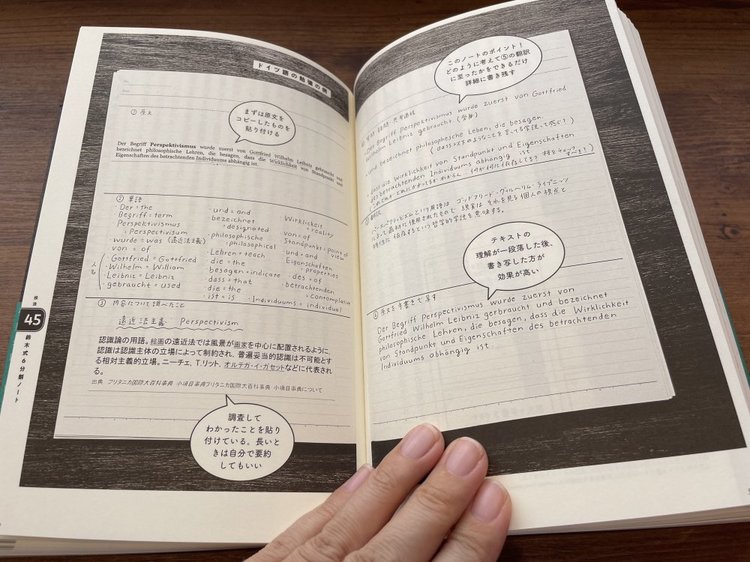 ドイツ語の勉強の例
まずは原文を
コピーしたものを
貼り付ける
① 原文
Der Begriff Perspektivismus wurde zuerst von Gottfried Wilhelm Leibniz gebraucht und
bezeichnet philosophische Lehren, die besagen, dass die Wirklichkeit von Standpunkt und
Eigenschaften des betrachtenden Individuums abhängig ist.
② 単語
Der = the
Begriff = term
Perspektivismus
= Perspectivism
wurde = was (遠近法主義)
von = of
Gottfried = Gottfried
Wilhelm = William
Leibniz = Leibniz
gebraucht = used
und = and
bezeichnet
= designated
philosophische
= philosophical
Lehren = teach
die = the
besagen = indicate
dass = that
die = the
ist = is
Wirklichkeit
= reality
von = of
Standpunkt = point of view
und = and
Eigenschaften
= properties
des = of
betrachtenden
= contemplation
Individuums = individual
③ 内容について調べたこと
遠近法主義 Perspectivism
認識論の用語。絵画の遠近法では風景が画家を中心に配置されるように
認識は認識主体の立場によって制約され、普遍妥当的認識は不可能とす
る相対主義的立場。ニーチェ、T.リット、オルテガ・イ・ガセットなどに代表され
る。
出典 ブリタニカ国際大百科事典 小項目事典ブリタニカ国際大百科事典 小項目事典について
調査して
わかったことを貼り
付けている。長いと
きは自分で要約
してもいい
技法
45
鈴木式6分割ノート
このノートのポイント!
どのように考えて⑤の翻訳
に至ったかをできるだけ
詳細に書き残す
Der Begriff Perspektivismus wurde zuerst von Gottfried
Wilhelm Leibniz gebraucht
und bezeichnet philosophische Lehren, die besagen
dass die Wirklichkeit von Standpunkt und Eigenschaften
des betrachtenden Individuums abhängig ist.
テキストの
理解が一段落した後、
書き写した方が
効果が高い
⑥ 原文を手書きで写す
Der Begriff Perspektivismus wurde zuerst von
Gottfried Wilhelm Leibniz gebraucht und bezeichnet
philosophische Lehren, die besagen, dass die Wirklichkeit
von Standpunkt und Eigenschaften des betrachtenden
Individuums abhängig ist.